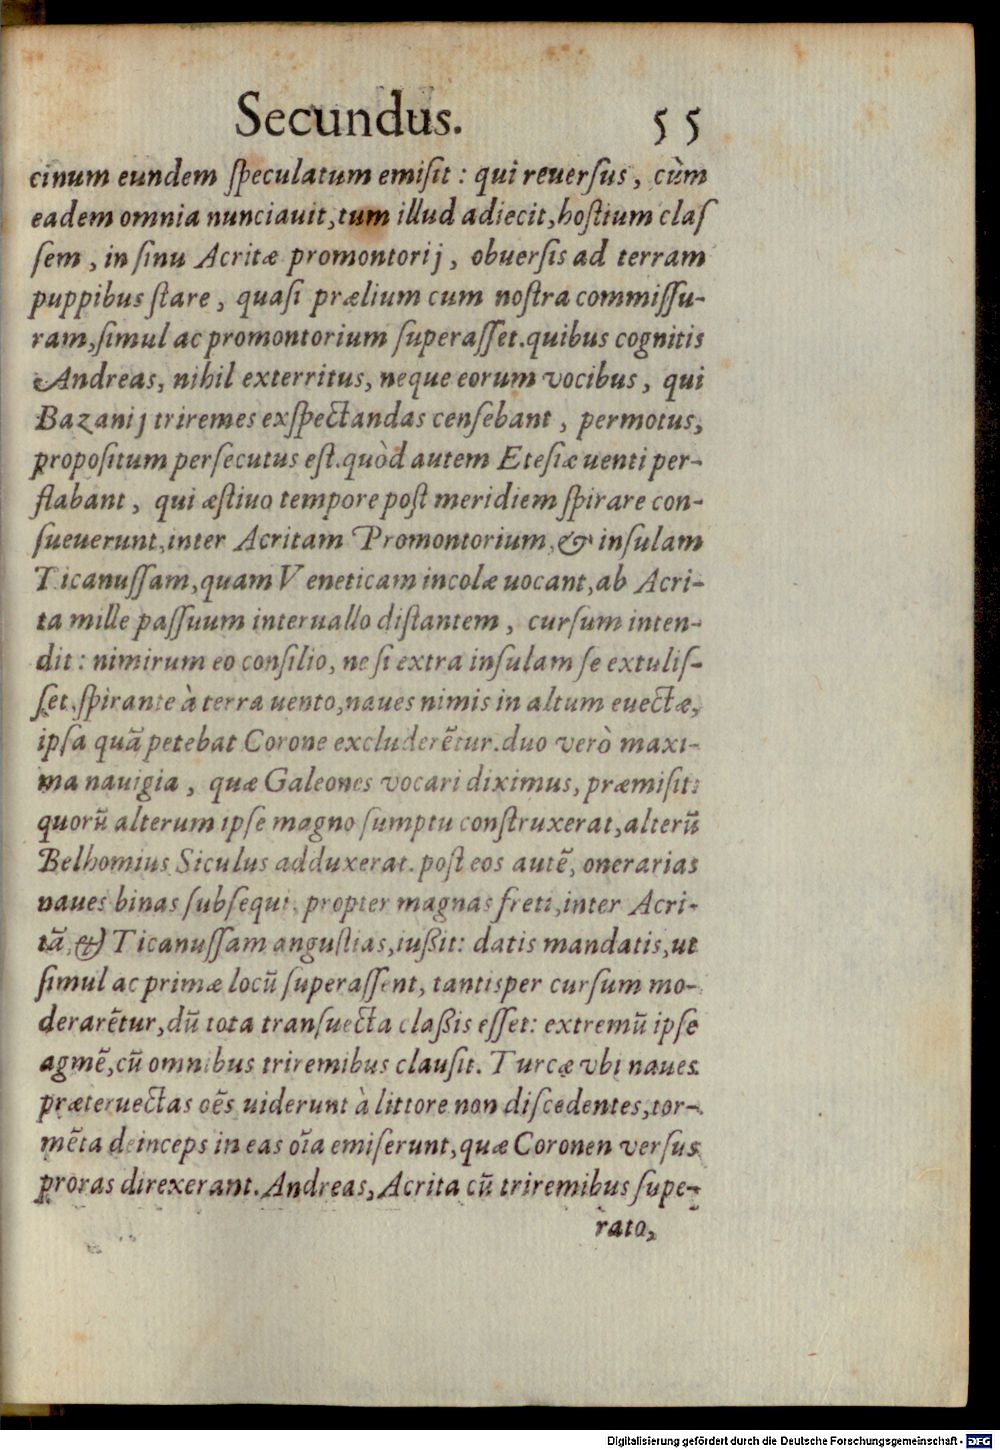 Secundus. 55
cinum eundem ſpeculatum emiſit : qui reuerſus, cùm
eadem omnia nunciauit, tum illud adiecit, hoſtium claſ
ſem, in ſinu Acritæ promontorij, obuerſis ad terram
puppibus ſtare, quaſi prælium cum noſtra commiſſu-
ram, ſimul ac promontorium ſuperaſſet. quibus cognitis
Andreas, nihil exterritus, neque eorum vocibus, qui
Bazanij triremes exſpectandas cenſebant, permotus,
propoſitum perſecutus eſt. quòd autem Eteſiæ uenti per-
flabant, qui æſtiuo tempore poſt meridiem ſpirare con-
ſueuerunt, inter Acritam Promontorium, & inſulam
Ticanuſſam, quam Veneticam incolæ uocant, ab Acri-
ta mille paſſuum interuallo diſtantem, curſum inten-
dit : nimirum eo conſilio, ne ſi extra inſulam ſe extuliſ-
ſet, ſpirante à terra uento, naues nimis in altum euectæ,
ipſa quã petebat Corone excluderẽtur. duo verò maxi-
ma nauigia, quæ Galeones vocari diximus, præmiſit:
quorũ alterum ipſe magno ſumptu conſtruxerat, alterũ
Belhomius Siculus adduxerat. poſt eos autẽ, onerarias
naues binas ſubſequi, propter magnas freti, inter Acri-
tã, & Ticanuſſam anguſtias, iußit: datis mandatis, ut
ſimul ac primæ locũ ſuperaſſent, tantisper curſum mo-
derarẽtur, dũ tota tranſuecta claßis eſſet: extremũ ipſe
agmẽ, cũ omnibus triremibus clauſit. Turcæ vbi naues
præteruectas oẽs uiderunt à littore non diſcedentes, tor-
mẽta deinceps in eas oĩa emiſerunt, quæ Coronen verſus
proras direxerant. Andreas, Acrita cũ triremibus ſupe-
rato,
Digitalisierung gefördert durch die Deutsche Forschungsgemeinschaft - DFG